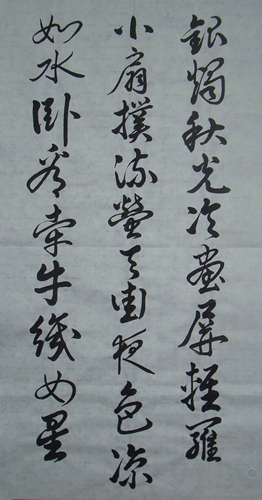 銀燭秋光冷畫屏輕羅
小扇撲流螢天街夜色涼
如水臥看牽牛織女星